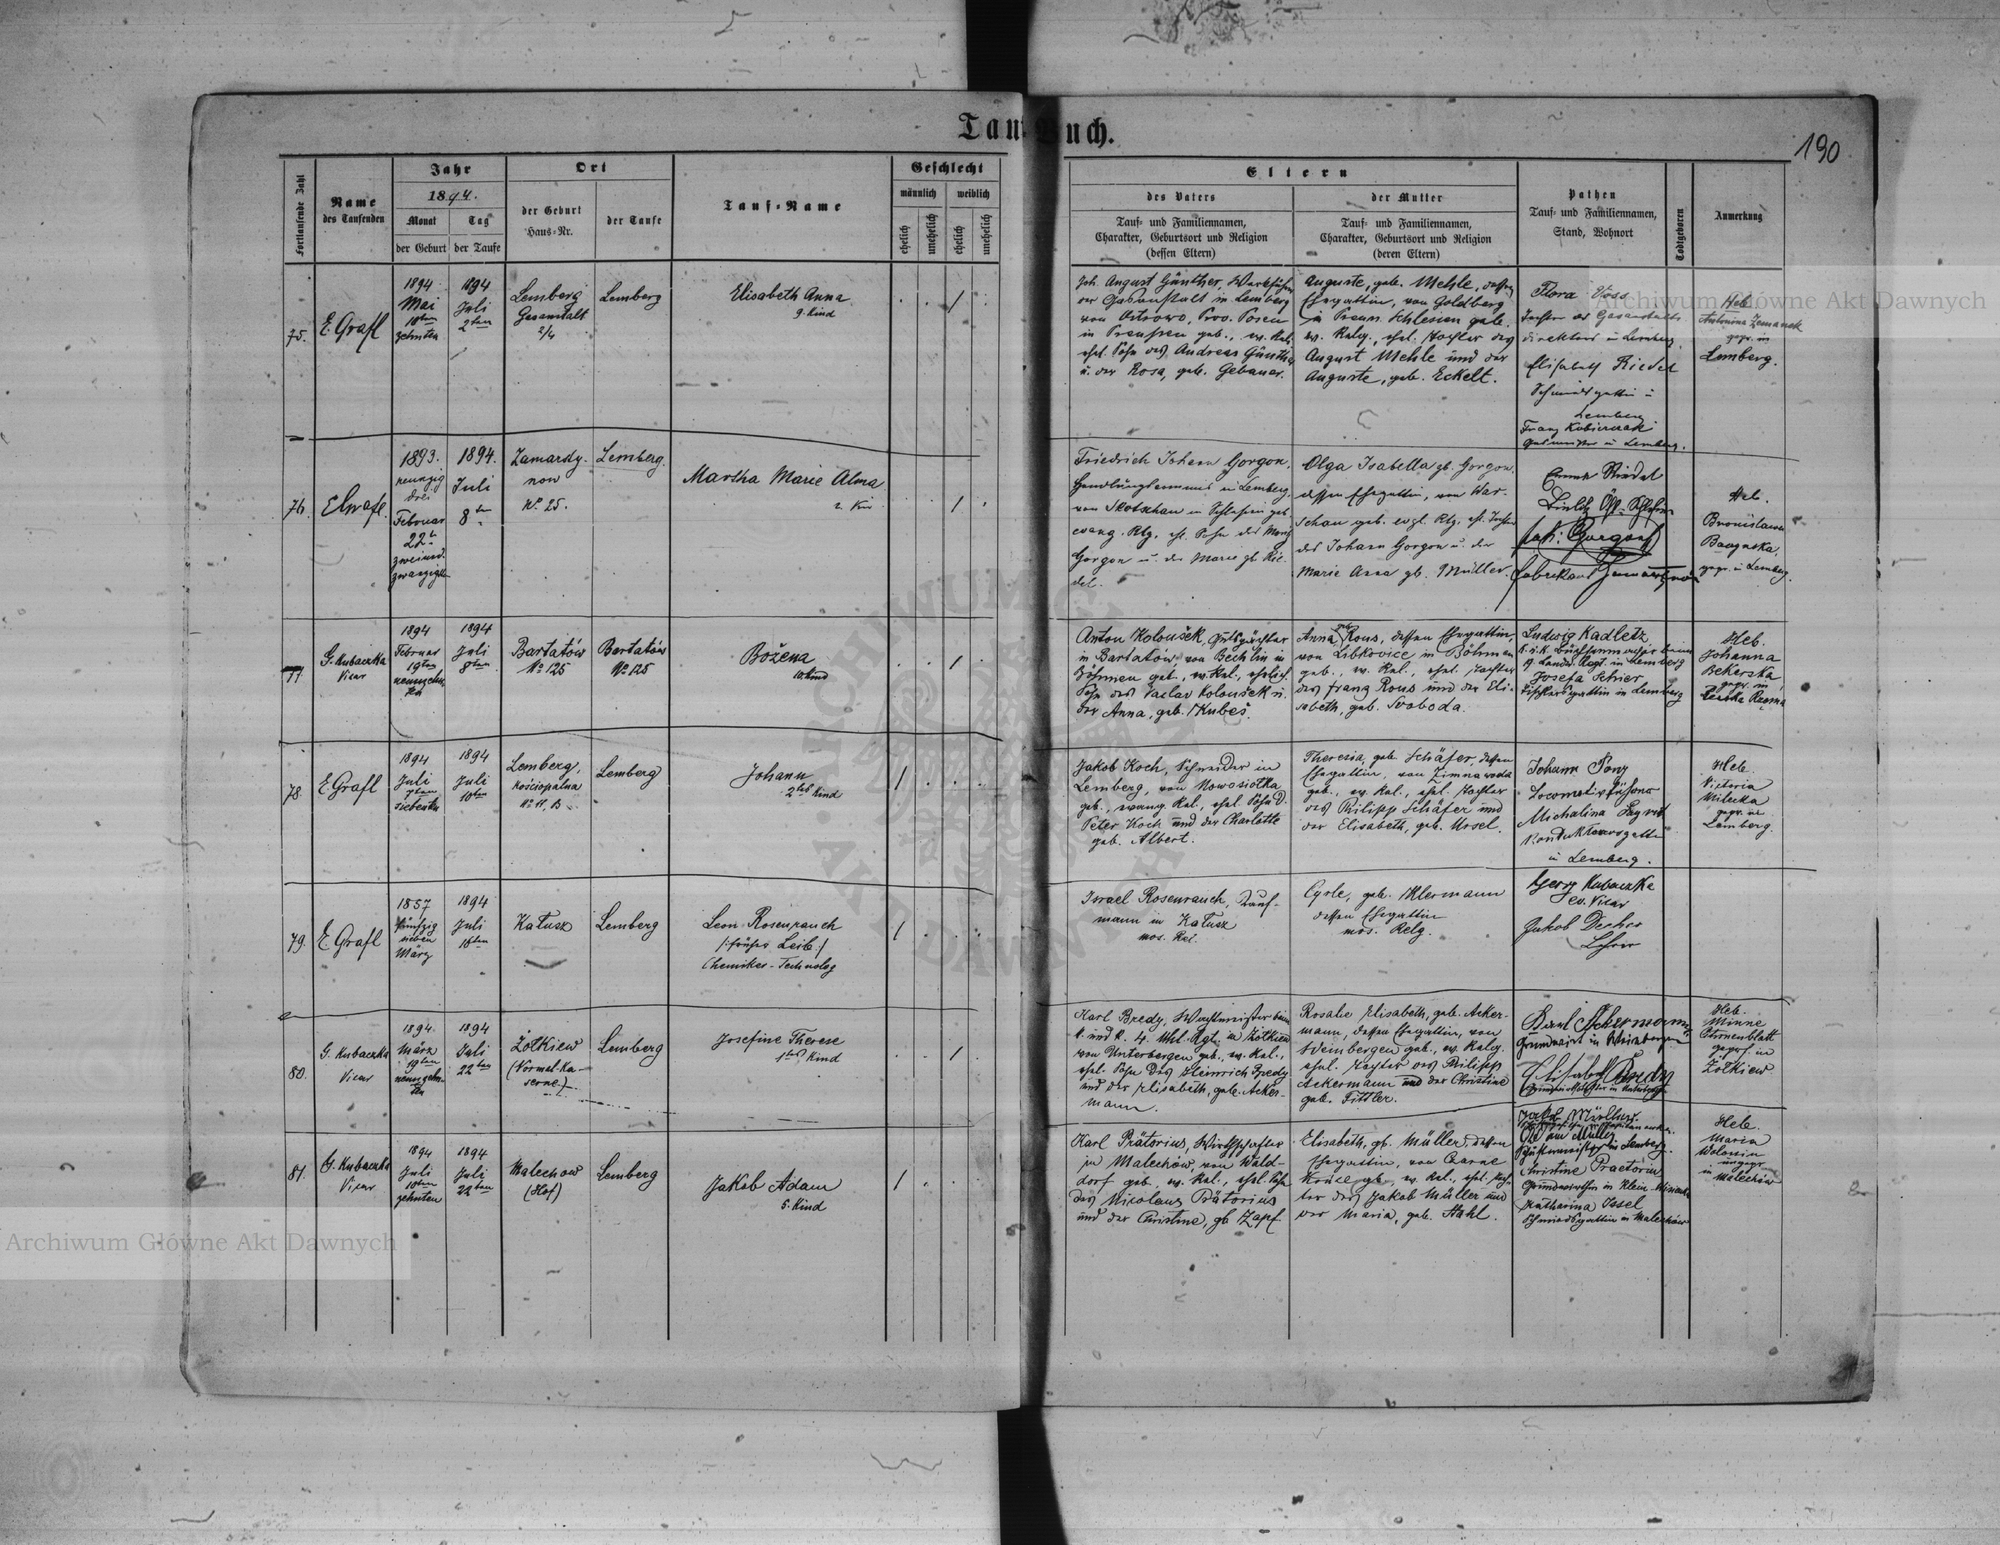 Tauf-Buch.
190
Fortlaufende Zahl
Name
des Taufenden
Jahr
1894.
Monat
der Geburt
Tag
der Taufe
Ort
der Geburt
Haus-Nr.
der Taufe
Tauf-Name
Geschlecht
männlich
weiblich
ehelich
unehelich
ehelich
unehelich
Eltern
des Vaters
Tauf- und Familiennamen,
Charakter, Geburtsort und Religion
(dessen Eltern)
der Mutter
Tauf- und Familiennamen,
Charakter, Geburtsort und Religion
(deren Eltern)
Pathen
Tauf- und Familiennamen,
Stand, Wohnort
Todtgeboren
Anmerkung
75.
E. Grafl
1894
Mai
10ten
zehnten
1894
Juli
2ten
Lemberg
Gasanstalt
2/4
Lemberg
Elisabeth Anna
9. Kind
Joh. August Günther, Werkführer
der Gasanstalt in Lemberg
von Ostrowo, Prov. Posen
in Preußen geb., ev. Rel.
ehel. Sohn des Andreas Günther
u. der Rosa, geb. Gebauer.
Auguste, geb. Mehle, dessen
Ehegattin, von Goldberg
in Preuss. Schlesien geb.
ev. Relig., ehel. Tochter des
August Mehle und der
Auguste, geb. Eckelt.
Flora Voss
Tochter des Gasanstalts
direktors in Lemberg
Elisabeth Riedel
Schmidsgattin in
Lemberg
Franz
in Lemberg.
Heb.
Antonina Zemanek
gepr. in
Lemberg.
76.
E. Grafl
1893.
neunzig
drei
Februar
22t
zweiund
zwanzigsten
1894.
Juli
8ten
Zamarsty-
now
No 25.
Lemberg.
Martha Marie Alma
2. Kind
Friedrich Johann Gorgon,
in Lemberg,
von Skotschau in Schlesien geb.
evang. Rlg. ehl. Sohn des Moritz
Gorgon u. der Marie gb. Rie-
del.
Olga Isabella gb. Gorgon,
dessen Ehegattin, von War-
schau geb. evgl. Rlg. ehl. Tochter
des Johann Gorgon u. der
Marie Anna gb. Müller.
Riedel
Bielitz Öst. Schlesien
Gorgon
Fabrikant
Heb.
Bronislawa
gepr. in Lemberg.
77
G. Kubaczka
Vicar
1894
Februar
19ten
neunzehn-
ten
1894
Juli
8ten
Bartatów
No 125
Bartatów
No 125
Božena
10. Kind
Anton Koloušek, Gutspächter
in Bartatów, von Bechlin in
Böhmen geb., ev. Rel., ehelich.
Sohn des Vaclav Koloušek u.
der Anna, geb. Kubeš.
Anna geb. Rous, dessen Ehegattin,
von Libkovice in Böhmen
geb., ev. Rel., ehel. Tochter
des Franz Rous und der Eli-
sabeth, geb. Svoboda.
Ludwig Kadletz
k. u. k. Büchsenmacher beim
in Lemberg
Josefa Schier
Tischlersgattin in Lemberg
Heb.
Johanna
Bekerska
gepr. in
78.
E. Grafl
1894
Juli
7ten
siebenten
1894
Juli
10ten
Lemberg,
Kościopalna
No 11 B
Lemberg
Johann
2tes Kind
Jakob Koch, Schneider in
Lemberg, von Nowosiołka
geb., evang. Rel., ehel. Sohn d.
Peter Koch und der Charlotte
geb. Albert.
Theresia, geb. Schäfer, dessen
Ehegattin, von Zimnawoda
geb., ev. Rel., ehel. Tochter
des Philipp Schäfer und
der Elisabeth, geb. Ursel.
Johann
Locomotivführer
Michalina
Kondukteursgattin
in Lemberg.
Heb.
Victoria
Milecka
gepr. in
Lemberg.
79.
E. Grafl
1857
fünfzig
sieben
März
1894
Juli
16ten
Kałusz
Lemberg
Leon Rosenrauch
/:früher Leib:/
Chemiker-Technolog
Israel Rosenrauch, Kauf-
mann in Kałusz
mos. Rel.
Cyrle, geb. Klermann
dessen Ehegattin
mos. Relg.
Georg Kubaczka
ev. Vicar
Jakob Decker
Lehrer
80.
G. Kubaczka
Vicar
1894.
März
19ten
neunzehn-
ten
1894
Juli
22ten
Żołkiew
(Normal-Ka-
serne)
Lemberg
Josefine Therese
1tes Kind
Karl Bredy, Wachtmeister beim
k. und k. 4. Uhl. Rgt. in Żółkiew
von Unterbergen geb., ev. Rel.,
ehel. Sohn des Heinrich Bredy
und der Elisabeth, geb. Acker-
mann.
Rosalie Elisabeth, geb. Acker-
mann, dessen Ehegattin, von
Weinbergen geb., ev. Relig.
ehel. Tochter des Philipp
Ackermann und der Christine
geb. Fittler.
Karl Ackermann
Grundwirt in Weinbergen
Elisabeth Bredy
Heb.
Minne
Stirnenblatt
geprf. in
Żółkiew
81.
G. Kubaczka
Vicar
1894
Juli
10ten
zehnten
1894
Juli
22ten
Malechow
(Hof)
Lemberg
Jakob Adam
5. Kind
Karl Prätorius, Wirthschafter
in Malechów, von Wald-
dorf geb. ev. Rel., ehel. Sohn
des Nicolaus Prätorius
und der Christine, gb. Zapf.
Elisabeth, gb. Müller, dessen
Ehegattin, von
geb. ev. Rel., ehel. Toch-
ter des Jakob Müller und
der Maria, geb. Stahl.
Jakob Müller
Müller
in Lemberg.
Christine Praetorius
Katharina Issel
Schmiedsgattin in Malechów
Heb.
Maria
Wolanin
ungepr.
in Malechów
Archiwum Główne Akt Dawnych
Archiwum Główne Akt Dawnych